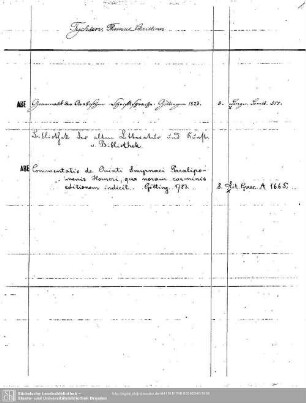 Tychsen, Thomas Christian
ABE Grammatik der Arabischen Schriftsprache. Göttingen 1823. 8. Lingu. Semit. 511.
Bibliothek der alten Litteratur und Kunst
s. Bibliothek
ABE Commentatio de Quinti Smyrnaei Paralipo-
menis Homeri, qua novam carminis
editionem indicit. Götting. 1783. 8. Lit. Graec. A 1665
Sächsische Landesbibliothek -
Staats- und Universitätsbibliothek Dresden